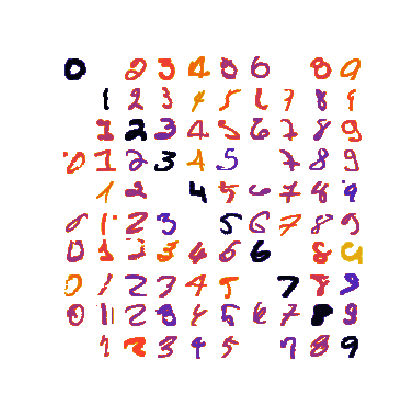 0 2 3 4 0 6 8 9
1 2 3 4 5 6 7 8 9
1 2 3 4 5 6 7 8 9
0 1 2 3 4 5 7 8 9
1 2 4 5 6 7 8 9
0 1 2 3 5 6 7 8 9
0 1 2 3 4 5 6 8 9
0 1 2 3 4 5 7 8 9
0 1 2 3 4 5 6 7 8 9
1 2 3 4 5 7 8 9